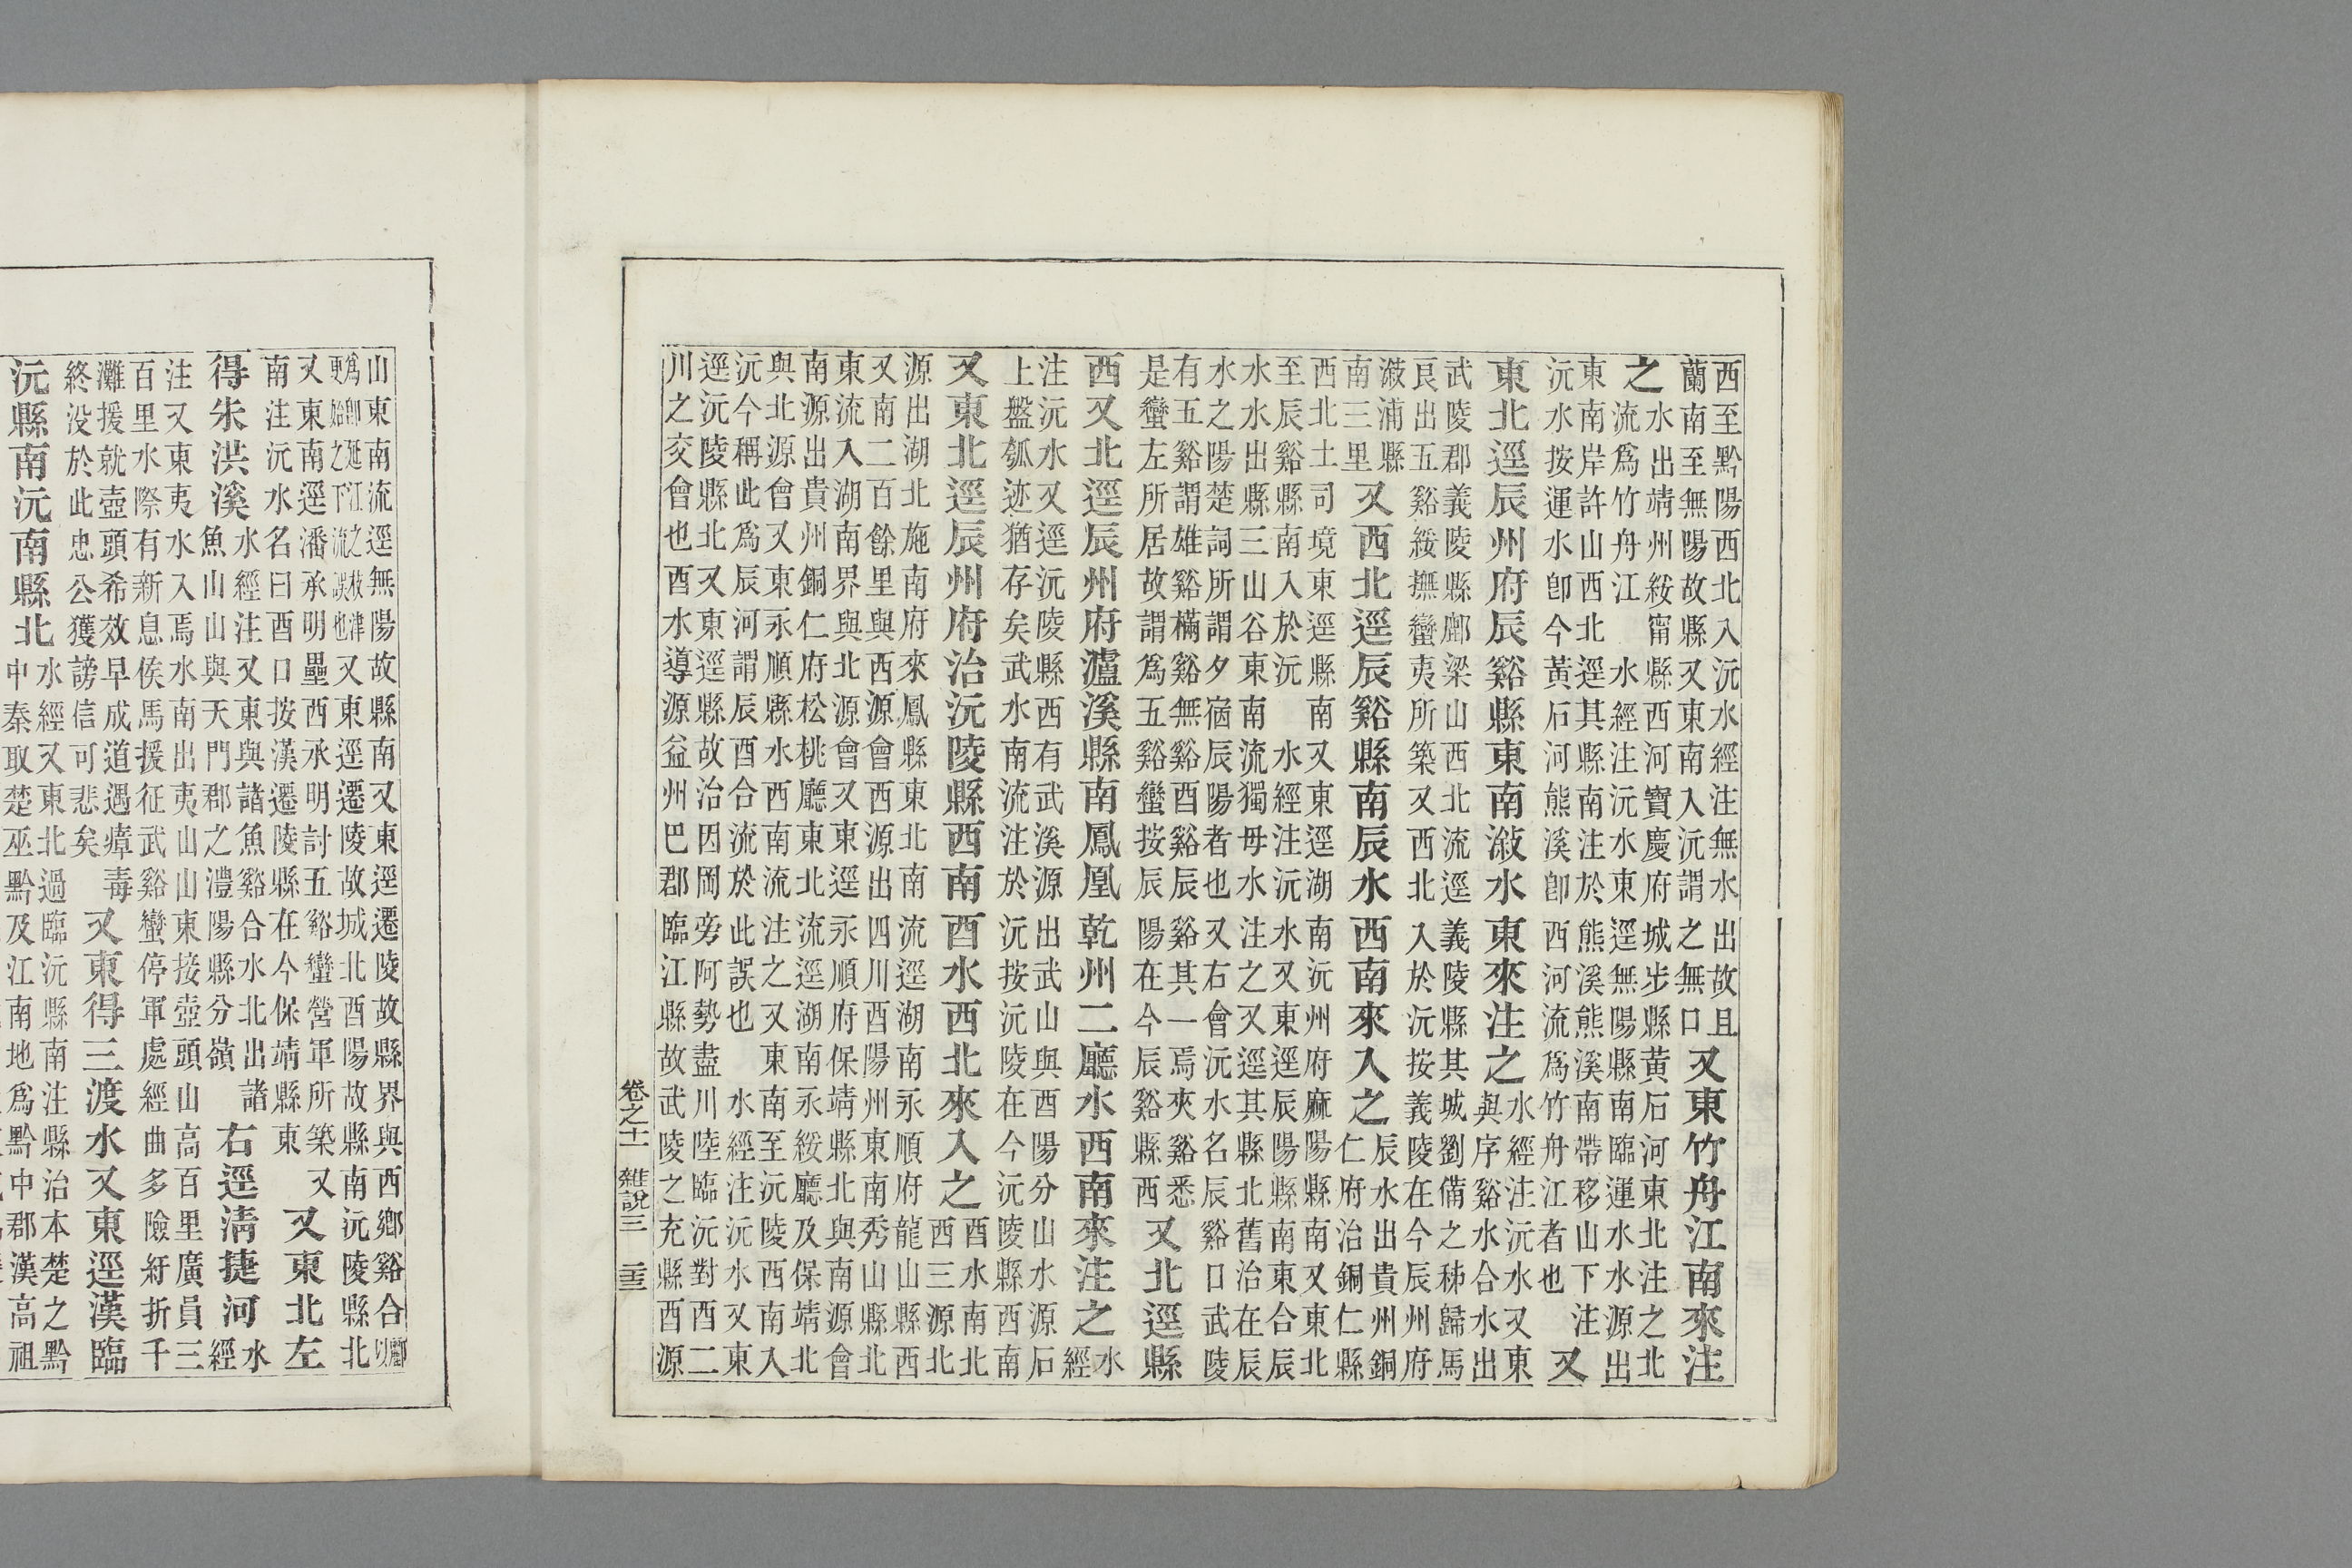 西至黔陽西北入沅水經注無水出故且
蘭南至無陽故縣又東南入沅謂之無口
又東竹舟江南來注
之
水出靖州綏甯縣西河寶慶府城步縣黄石河東北注之北
流爲竹舟江 水經注沅水東逕無陽縣南臨運水水源出
東南岸許山西北逕其縣南注於熊溪熊溪南帶移山下注
沅水按運水卽今黄石河熊溪卽西河流爲竹舟江者也
又
東北逕辰州府辰谿縣東南漵水東來注之
水經注沅水又東
與序谿水合水出
武陵郡義陵縣鄜梁山西北流逕義陵縣其城劉備之秭歸馬
良出五谿綏撫蠻夷所築又西北入於沅按義陵在今辰州府
漵浦縣
南三里
又西北逕辰谿縣南辰水西南來入之
辰水出貴州銅
仁府治銅仁縣
西北土司境東逕縣南又東逕湖南沅州府麻陽縣南又東北
至辰谿縣南入於沅 水經注沅水又東逕辰陽縣南東合辰
水水出縣三山谷東南流獨母水注之又逕其縣北舊治在辰
水之陽楚詞所謂夕宿辰陽者也又右會沅水名辰谿口武陵
有五谿謂雄谿樠谿無谿酉谿辰谿其一焉夾谿悉
是蠻左所居故謂爲五谿蠻按辰陽在今辰谿縣西
又北逕縣
西又北逕辰州府瀘溪縣南鳳凰乾州二廳水西南來注之
水
經
注沅水又逕沅陵縣西有武溪源出武山與酉陽分山水源石
上盤瓠迹猶存矣武水南流注於沅按沅陵在今沅陵縣西南
又東北逕辰州府治沅陵縣西南酉水西北來入之
酉水南北
西三源北
源出湖北施南府來鳳縣東北南流逕湖南永順府龍山縣西
又南二百餘里與西源會西源出四川酉陽州東南秀山縣北
東流入湖南界與北源會又東逕永順府保靖縣北與南源會
南源出貴州銅仁府松桃廳東北流逕湖南永綏廳及保靖北
與北源會又東永順縣水西南流注之又東南至沅陵西南入
沅今稱此爲辰河謂辰酉合流於此誤也 水經注沅水又東
逕沅陵縣北又東逕縣故治因岡旁阿勢盡川陸臨沅對酉二
川之交會也酉水導源益州巴郡臨江縣故武陵之充縣酉源
卷之十一 雜說三 三三
山東南流逕無陽故縣南又東逕遷陵故縣界與西鄉谿合
酈以
爲卽延江之枝津
更始之下流誤也
又東逕遷陵故城北酉陽故縣南沅陵縣北
又東南逕潘承明壘西承明討五谿蠻營軍所築又
南注沅水名曰酉口按漢遷陵縣在今保靖縣東
又東北左
得朱洪溪
水經注又東與諸魚谿合水北出諸
魚山山與天門郡之澧陽縣分嶺
右逕清捷河
水
經
注又東夷水入焉水南出夷山山東接壺頭山山高百里廣員三
百里水際有新息侯馬援征武谿蠻停軍處經曲多險紆折千
灘援就壺頭希效早成道遇瘴毒
終没於此忠公獲謗信可悲矣
又東得三渡水又東逕漢臨
沅縣南沅南縣北
水經又東北過臨沅縣南注縣治本楚之黔
中秦取楚巫黔及江南地爲黔中郡漢高祖